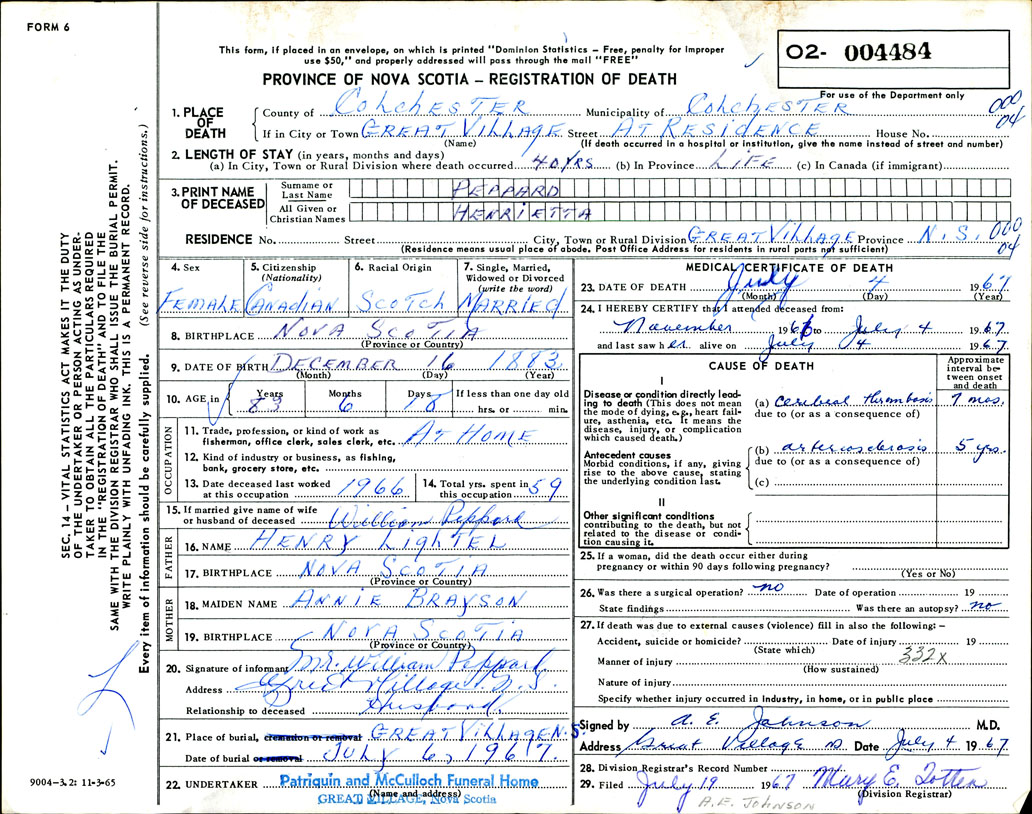 FORM 6
This form, if placed in an envelope, on which is printed "Dominion Statistics – Free, penalty for improper
use $50," and properly addressed will pass through the mail "FREE"
O2- 004484
For use of the Department only
PROVINCE OF NOVA SCOTIA – REGISTRATION OF DEATH
SEC. 14 – VITAL STATISTICS ACT MAKES IT THE DUTY
OF THE UNDERTAKER OR PERSON ACTING AS UNDER-
TAKER TO OBTAIN ALL THE PARTICULARS REQUIRED
IN THE "REGISTRATION OF DEATH" AND TO FILE THE
SAME WITH THE DIVISION REGISTRAR WHO SHALL ISSUE THE BURIAL PERMIT.
WRITE PLAINLY WITH UNFADING INK. THIS IS A PERMANENT RECORD.
Every item of information should be carefully supplied. (See reverse side for instructions.)
1. PLACE OF DEATH
County of COLCHESTER Municipality of COLCHESTER
000 04
If in City or Town GREAT VILLAGE Street AT RESIDENCE House No.
(Name) (If death occurred in a hospital or institution, give the name instead of street and number)
2. LENGTH OF STAY (in years, months and days)
(a) In City, Town or Rural Division where death occurred 40 YRS (b) In Province LIFE (c) In Canada (if immigrant)
3. PRINT NAME OF DECEASED
Surname or Last Name PEPPARD
All Given or Christian Names HENRIETTA
RESIDENCE No. Street City, Town or Rural Division GREAT VILLAGE Province N.S. 000 04
(Residence means usual place of abode. Post Office Address for residents in rural parts not sufficient)
4. Sex 5. Citizenship 6. Racial Origin 7. Single, Married,
(Nationality) Widowed or Divorced
(write the word)
FEMALE CANADIAN SCOTCH MARRIED
8. BIRTHPLACE NOVA SCOTIA
(Province or Country)
9. DATE OF BIRTH DECEMBER 16 1883
(Month) (Day) (Year)
10. AGE in Years Months Days If less than one day old
83 6 18 hrs. or min.
OCCUPATION
11. Trade, profession, or kind of work as
fisherman, office clerk, sales clerk, etc. AT HOME
12. Kind of industry or business, as fishing,
bank, grocery store, etc.
13. Date deceased last worked at this occupation 1966 14. Total yrs. spent in this occupation 59
15. If married give name of wife
or husband of deceased William Peppard
FATHER
16. NAME HENRY LIGHTEL
17. BIRTHPLACE NOVA SCOTIA
(Province or Country)
MOTHER
18. MAIDEN NAME ANNIE BRAYSON
19. BIRTHPLACE NOVA SCOTIA
(Province or Country)
20. Signature of informant Mr. William Peppard
Address Great Village N.S.
Relationship to deceased Husband
21. Place of burial, cremation or removal GREAT VILLAGE N.S.
Date of burial or removal JULY 6, 1967.
22. UNDERTAKER Patriquin and McCulloch Funeral Home
(Name and address)
GREAT VILLAGE, Nova Scotia
9004-3.2: 11-3-65
MEDICAL CERTIFICATE OF DEATH
23. DATE OF DEATH July 4 1967
(Month) (Day) (Year)
24. I HEREBY CERTIFY that I attended deceased from:
November 1966 to July 4 1967
and last saw her alive on July 4 1967.
CAUSE OF DEATH
Approximate interval between onset and death
I
Disease or condition directly lead-
ing to death (This does not mean
the mode of dying, e.g., heart fail-
ure, asthenia, etc. It means the
disease, injury, or complication
which caused death.)
(a) Cerebral thrombosis 7 mos.
due to (or as a consequence of)
Antecedent causes
Morbid conditions, if any, giving
rise to the above cause, stating
the underlying condition last.
(b) arteriosclerosis 5 yrs.
due to (or as a consequence of)
(c)
II
Other significant conditions
contributing to the death, but not
related to the disease or condi-
tion causing it.
25. If a woman, did the death occur either during
pregnancy or within 90 days following pregnancy?
(Yes or No)
26. Was there a surgical operation? no Date of operation 19
State findings Was there an autopsy? no
27. If death was due to external causes (violence) fill in also the following: –
Accident, suicide or homicide? Date of injury 19
(State which) 332X
Manner of injury
(How sustained)
Nature of injury
Specify whether injury occurred in industry, in home, or in public place
Signed by A. E. Johnson M.D.
Address Great Village NS Date July 4 1967
28. Division Registrar's Record Number
29. Filed July 19 1967 Mary E. Totten
(Division Registrar)
A.E. JOHNSON